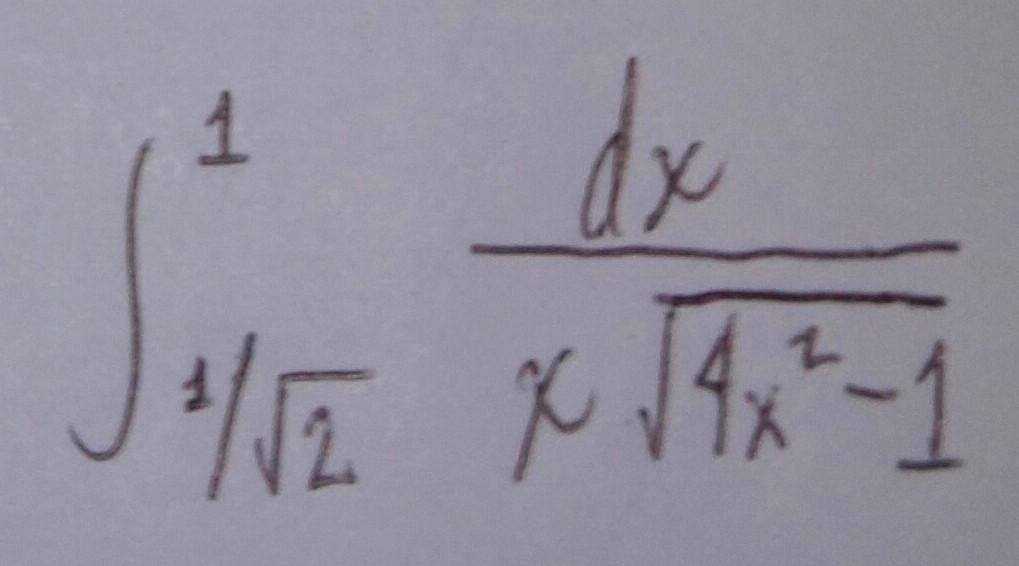 ∫_{1/√2}^{1} dx / (x √(4x² - 1))